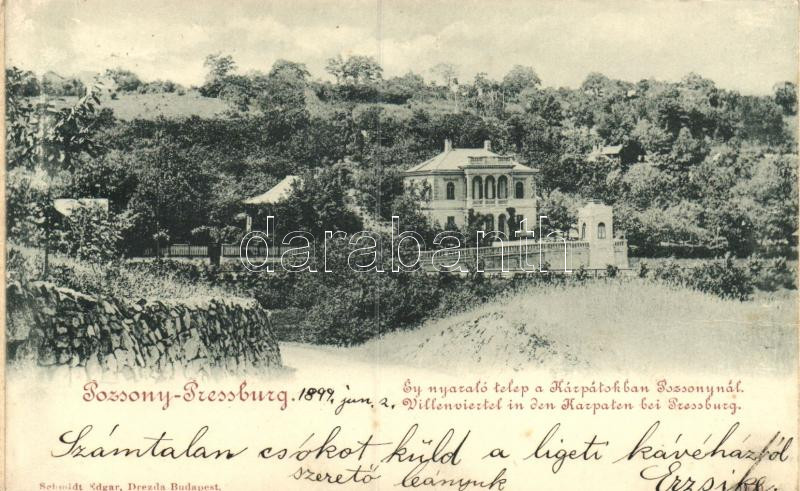 darabanth
Pozsony-Pressburg. 1899 jun. 2.
Egy nyaraló telep a Kárpátokban Pozsonynál.
Villenviertel in den Karpaten bei Pressburg.
Számtalan csókot küld a ligeti kávéházból
szerető leányuk Erzsike
Schmidt Edgar, Drezda Budapest.